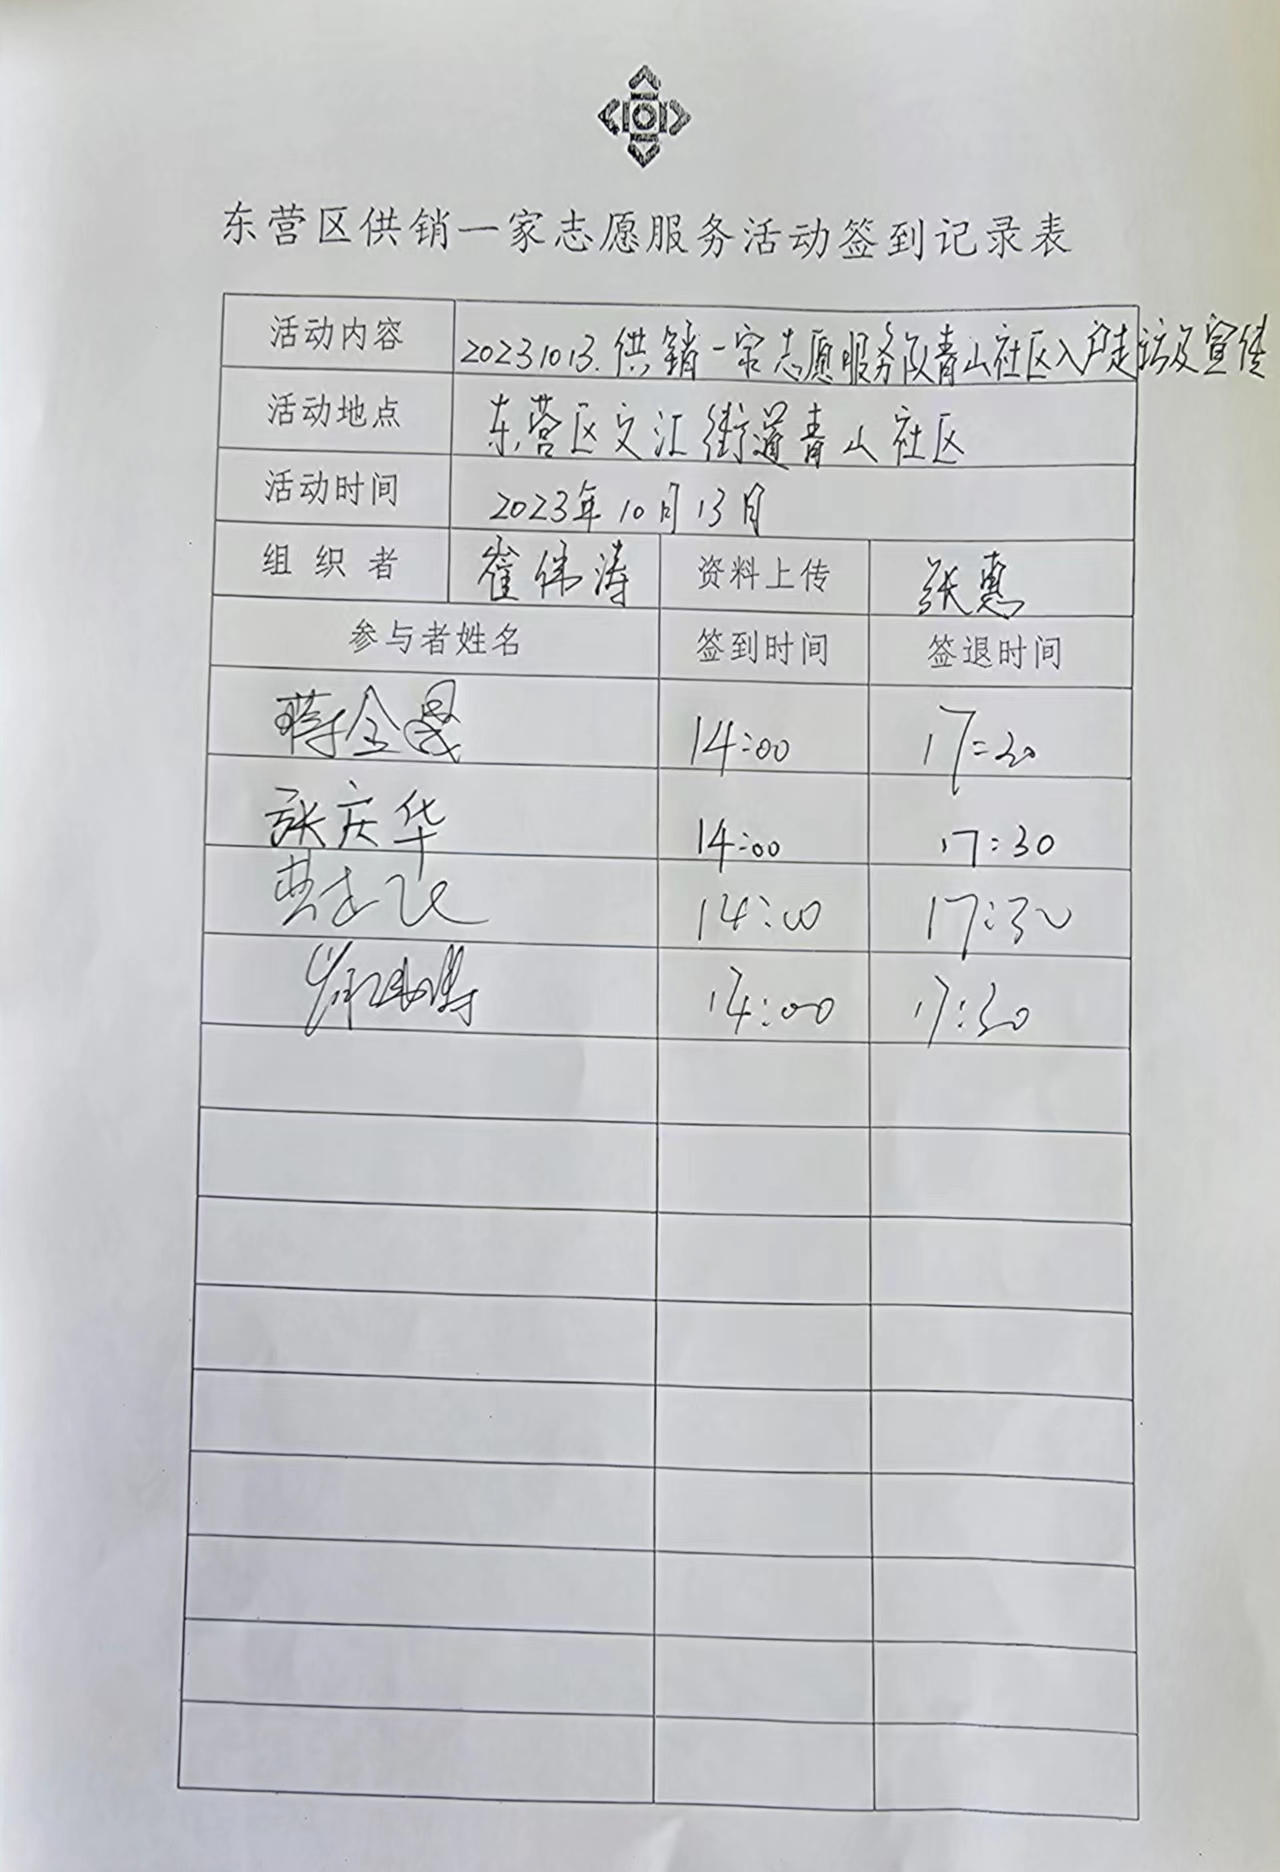 东营区供销一家志愿服务活动签到记录表
活动内容 20231013.供销一家志愿服务队青山社区入户走访及宣传
活动地点 东营区文汇街道青山社区
活动时间 2023年10月13日
组织者 崔伟涛 资料上传 张惠
参与者姓名 签到时间 签退时间
蒋全 14:00 17:30
张庆华 14:00 17:30
曹志 14:00 17:30
14:00 17:30